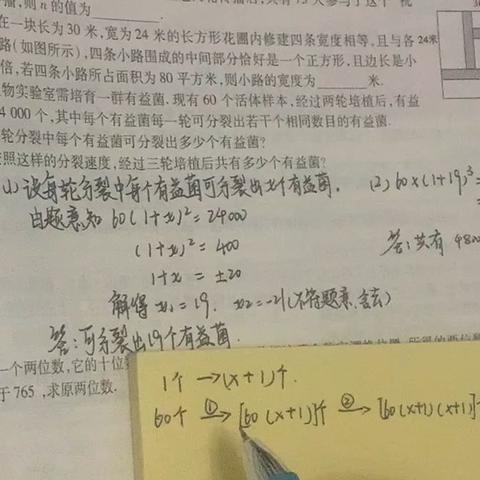 播,则 n 的值为
在一块长为30米,宽为24米的长方形花圃内修建四条宽度相等,且与各
24米
路(如图所示),四条小路围成的中间部分恰好是一个正方形,且边长是小
倍,若四条小路所占面积为80平方米,则小路的宽度为 米.
物实验室需培育一群有益菌.现有60个活体样本,经过两轮培植后,有益
4 000个,其中每个有益菌每一轮可分裂出若干个相同数目的有益菌.
轮分裂中每个有益菌可分裂出多少个有益菌?
按照这样的分裂速度,经过三轮培植后共有多少个有益菌?
(1) 设每轮分裂中每个有益菌可分裂出x个有益菌.
(2) 60×(1+19)³=
由题意知 60(1+x)²=24000
(1+x)²=400
答:共有 480
1+x=±20
解得 x₁=19. x₂=-21(不符题意,舍去)
答:可分裂出19个有益菌.
一个两位数,它的十位
于765,求原两位数.
1个→(x+1)个.
60个 ①→ [60(x+1)]个 ②→ [60(x+1)(x+1)]